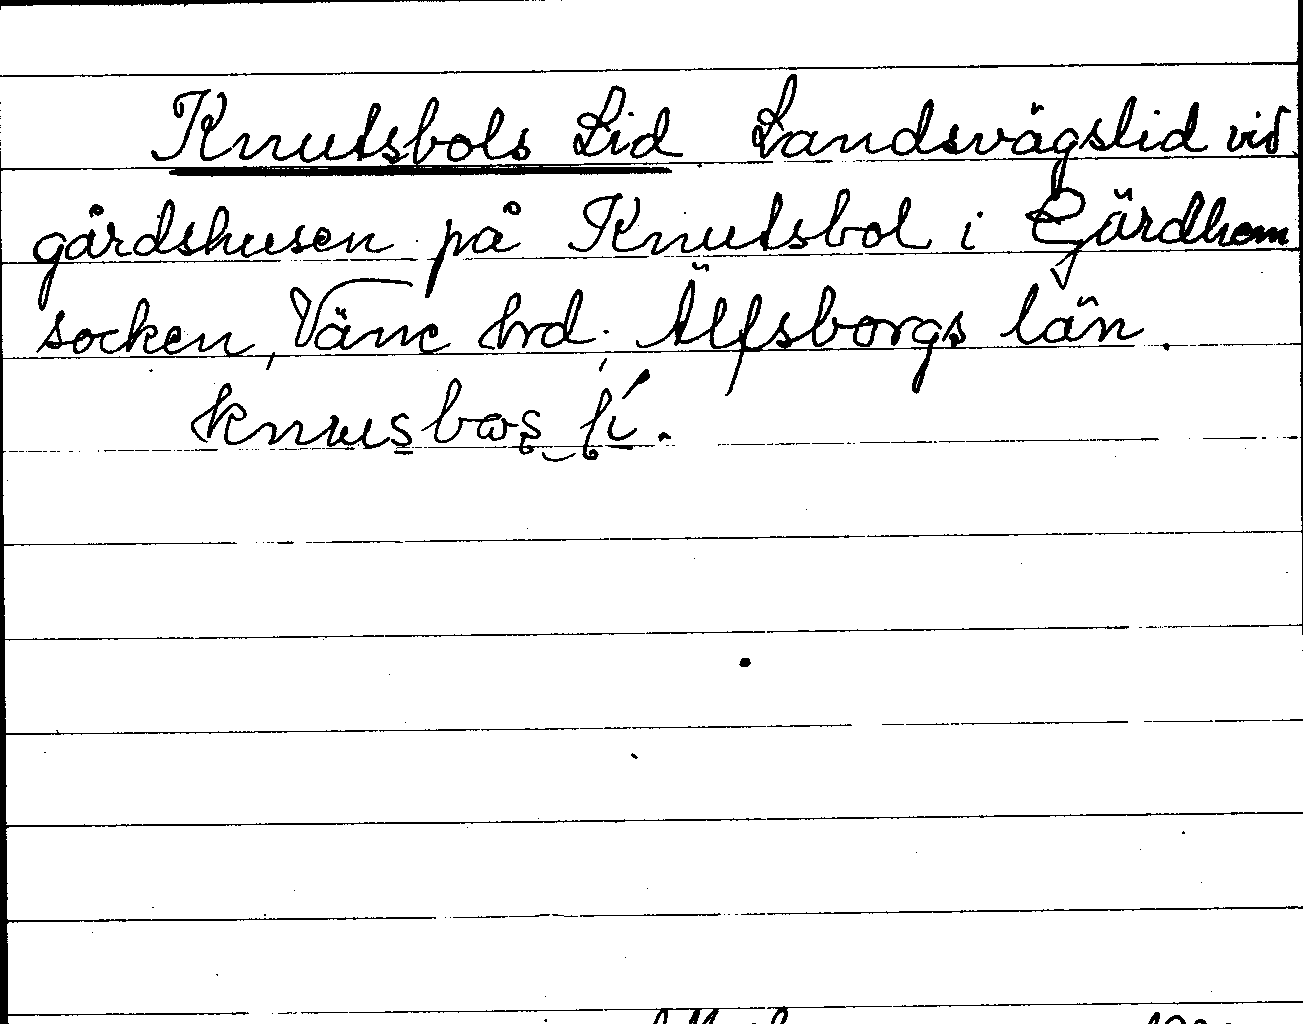 Knutsbols Lid Landsvägslid vid
gårdshusen på Knutsbol i Gärdhem
socken, Väne hrd; Älfsborgs län.